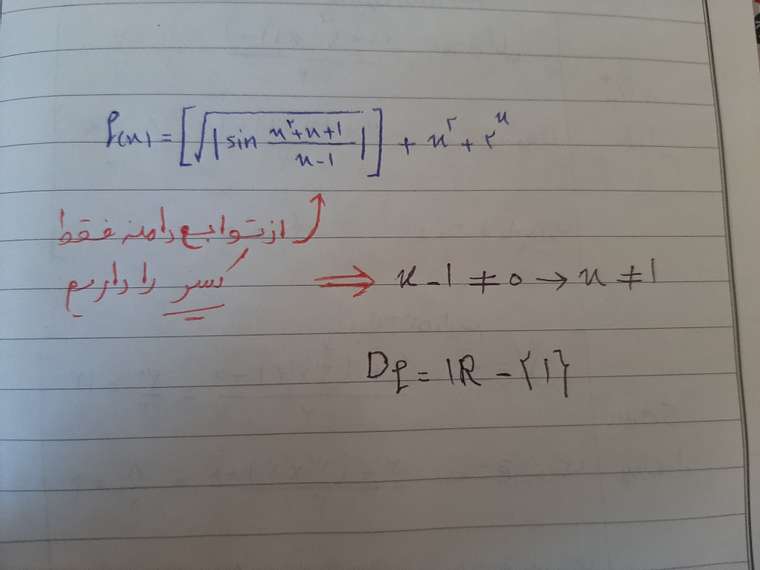 f(x) = [√|sin (x²+x+1)/(x-1)|] + x² + ۲^x
از توابع دامنه فقط
کسر را داریم ⇒ x - 1 ≠ 0 → x ≠ 1
Df = ℝ - {1}